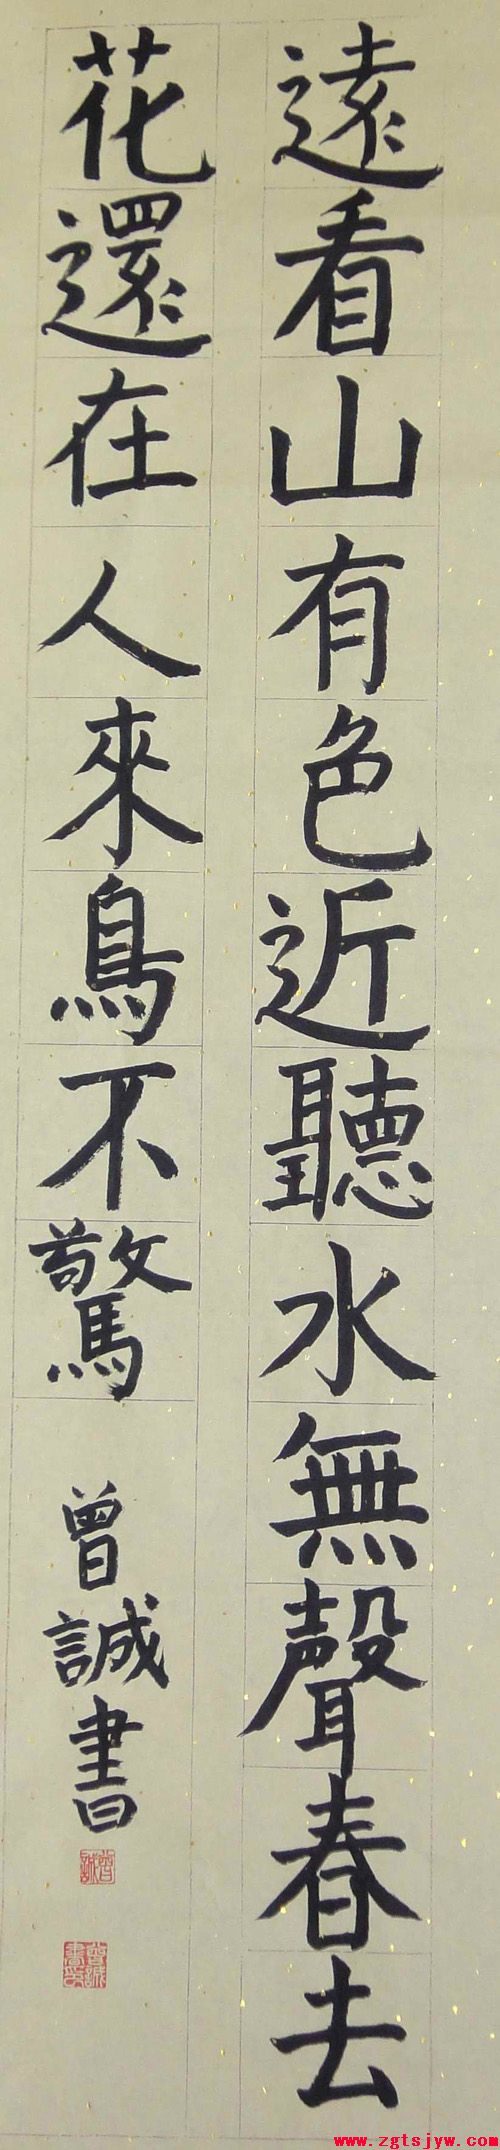 遠看山有色近聽水無聲春去
花還在人來鳥不驚
曾誠書
www.zgtsjyw.com